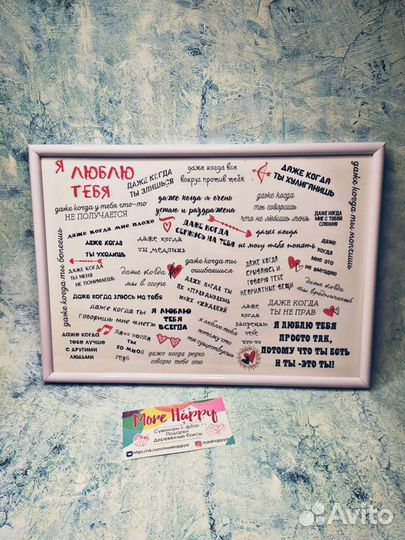 Я ЛЮБЛЮ
ТЕБЯ
даже когда все
вокруг против тебя
ДАЖЕ КОГДА
ТЫ ЗЛИШЬСЯ
ДАЖЕ КОГДА
ТЫ ХУЛИГАНИШЬ
даже когда ты молчишь
даже когда у тебя что-то
НЕ ПОЛУЧАЕТСЯ
даже когда я очень
устаю и раздражена
даже когда
ты говоришь
что не любишь меня
ДАЖЕ КОГДА
МНЕ С ТОБОЙ
СЛОЖНО
даже когда мне плохо
ДАЖЕ КОГДА
СЕРЖУСЬ НА ТЕБЯ
даже когда
не могу тебя понять
даже когда ты болеешь
ДАЖЕ КОГДА
ТЫ УХОДИШЬ
даже когда
ты медлишь
КОГДА
МНЕ ЭТО
НЕ ВЫГОДНО
ДАЖЕ КОГДА
ТЫ МЕНЯ
НЕ ПОНИМАЕШЬ
даже когда
мы в ссоре
даже когда ты
ошибаешься
ДАЖЕ КОГДА
СРЫВАЮСЬ И
ГОВОРЮ ТЕБЕ
НЕПРИЯТНЫЕ ВЕЩИ
даже когда
ты вредничаешь
ДАЖЕ КОГДА ЗЛЮСЬ НА ТЕБЯ
ДАЖЕ КОГДА ТЫ
НЕ ОПРАВДЫВАЕШЬ
МОИХ ОЖИДАНИЙ
ДАЖЕ КОГДА
ТЫ НЕ ПРАВ
ДАЖЕ КОГДА ТЫ
ГОВОРИШЬ МНЕ «НЕТ»
Я ЛЮБЛЮ
ТЕБЯ
ВСЕГДА
я люблю тебя
потому что
ты существуешь
даже
когда
запрещаю
тебе
что-то
Я ЛЮБЛЮ ТЕБЯ
ПРОСТО ТАК,
ПОТОМУ ЧТО ТЫ ЕСТЬ
И ТЫ - ЭТО ТЫ!
ДАЖЕ КОГДА
ТЕБЕ ЛУЧШЕ
С ДРУГИМИ
ЛЮДЬМИ
КОГДА
ТЫ СО МНОЙ
даже когда редко
говорю тебе это
More Happy
Сувениры с фото
Подарки
Деревянные боксы
https://vk.com/morehappyr
Avito